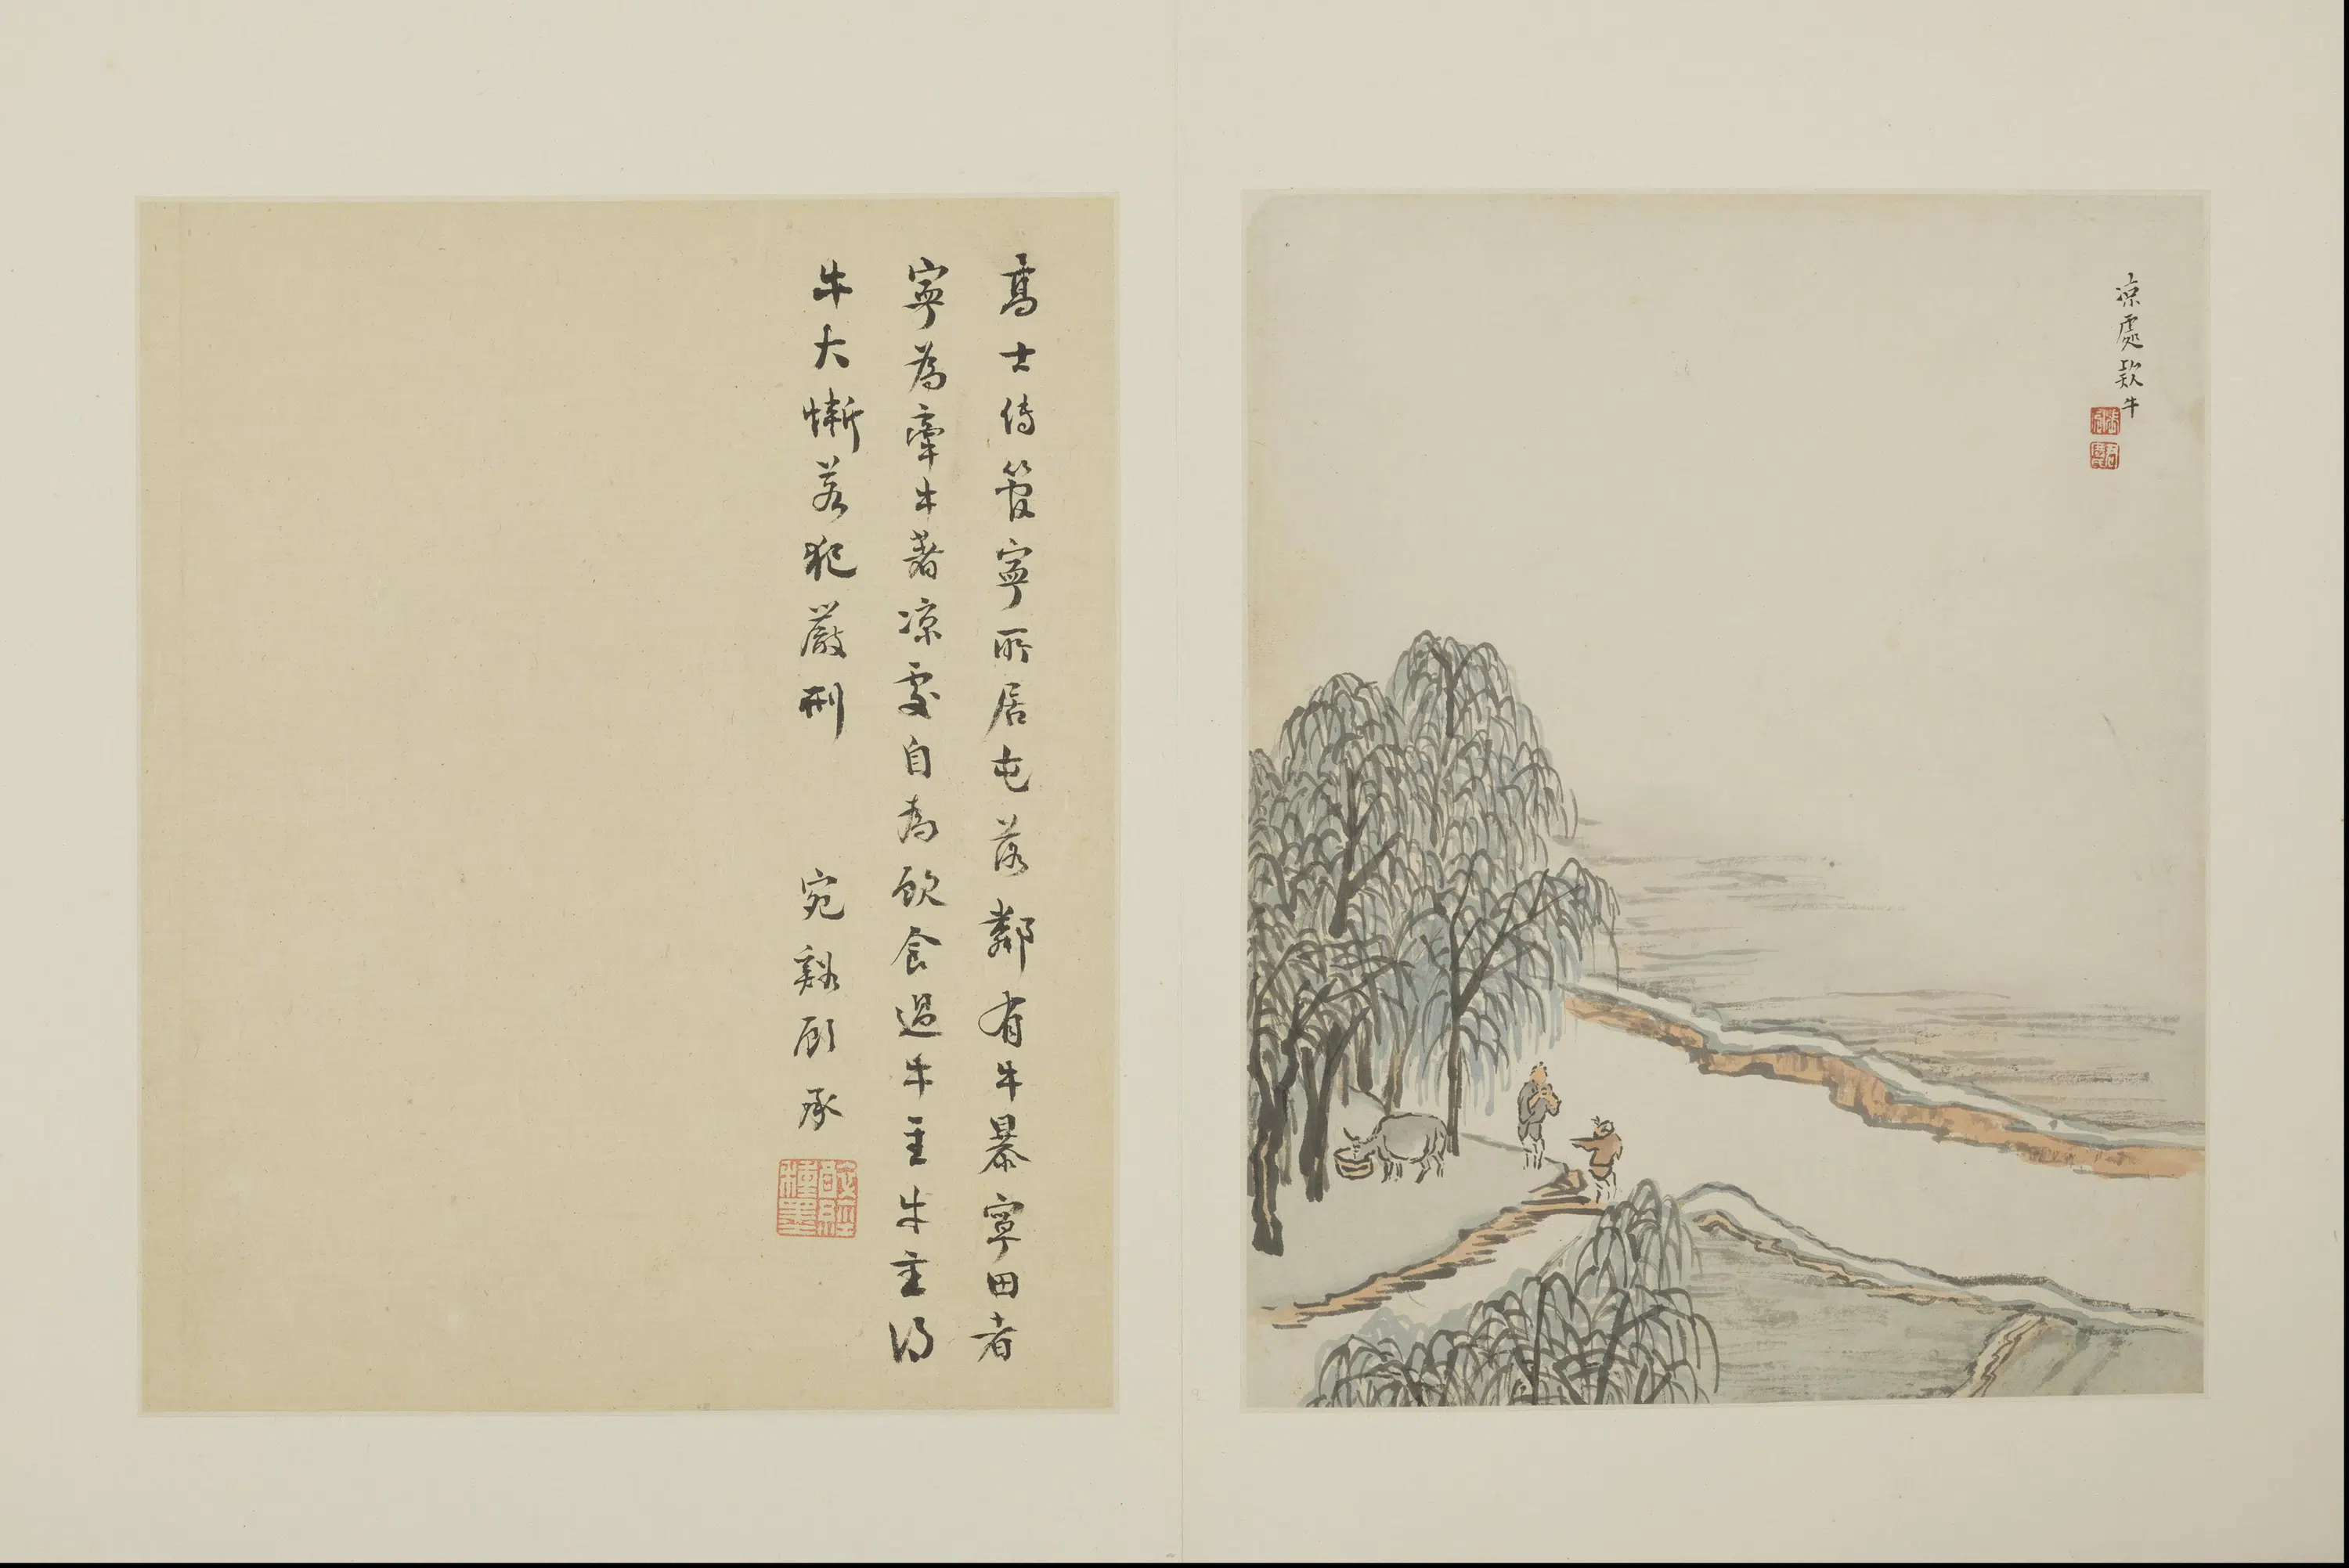 涼處款牛
高士傳管寧所居屯落鄰有牛暴寧田者
寧為牽牛著涼處自為飲食過牛主牛主得
牛大慚若犯嚴刑
宛谿顧承